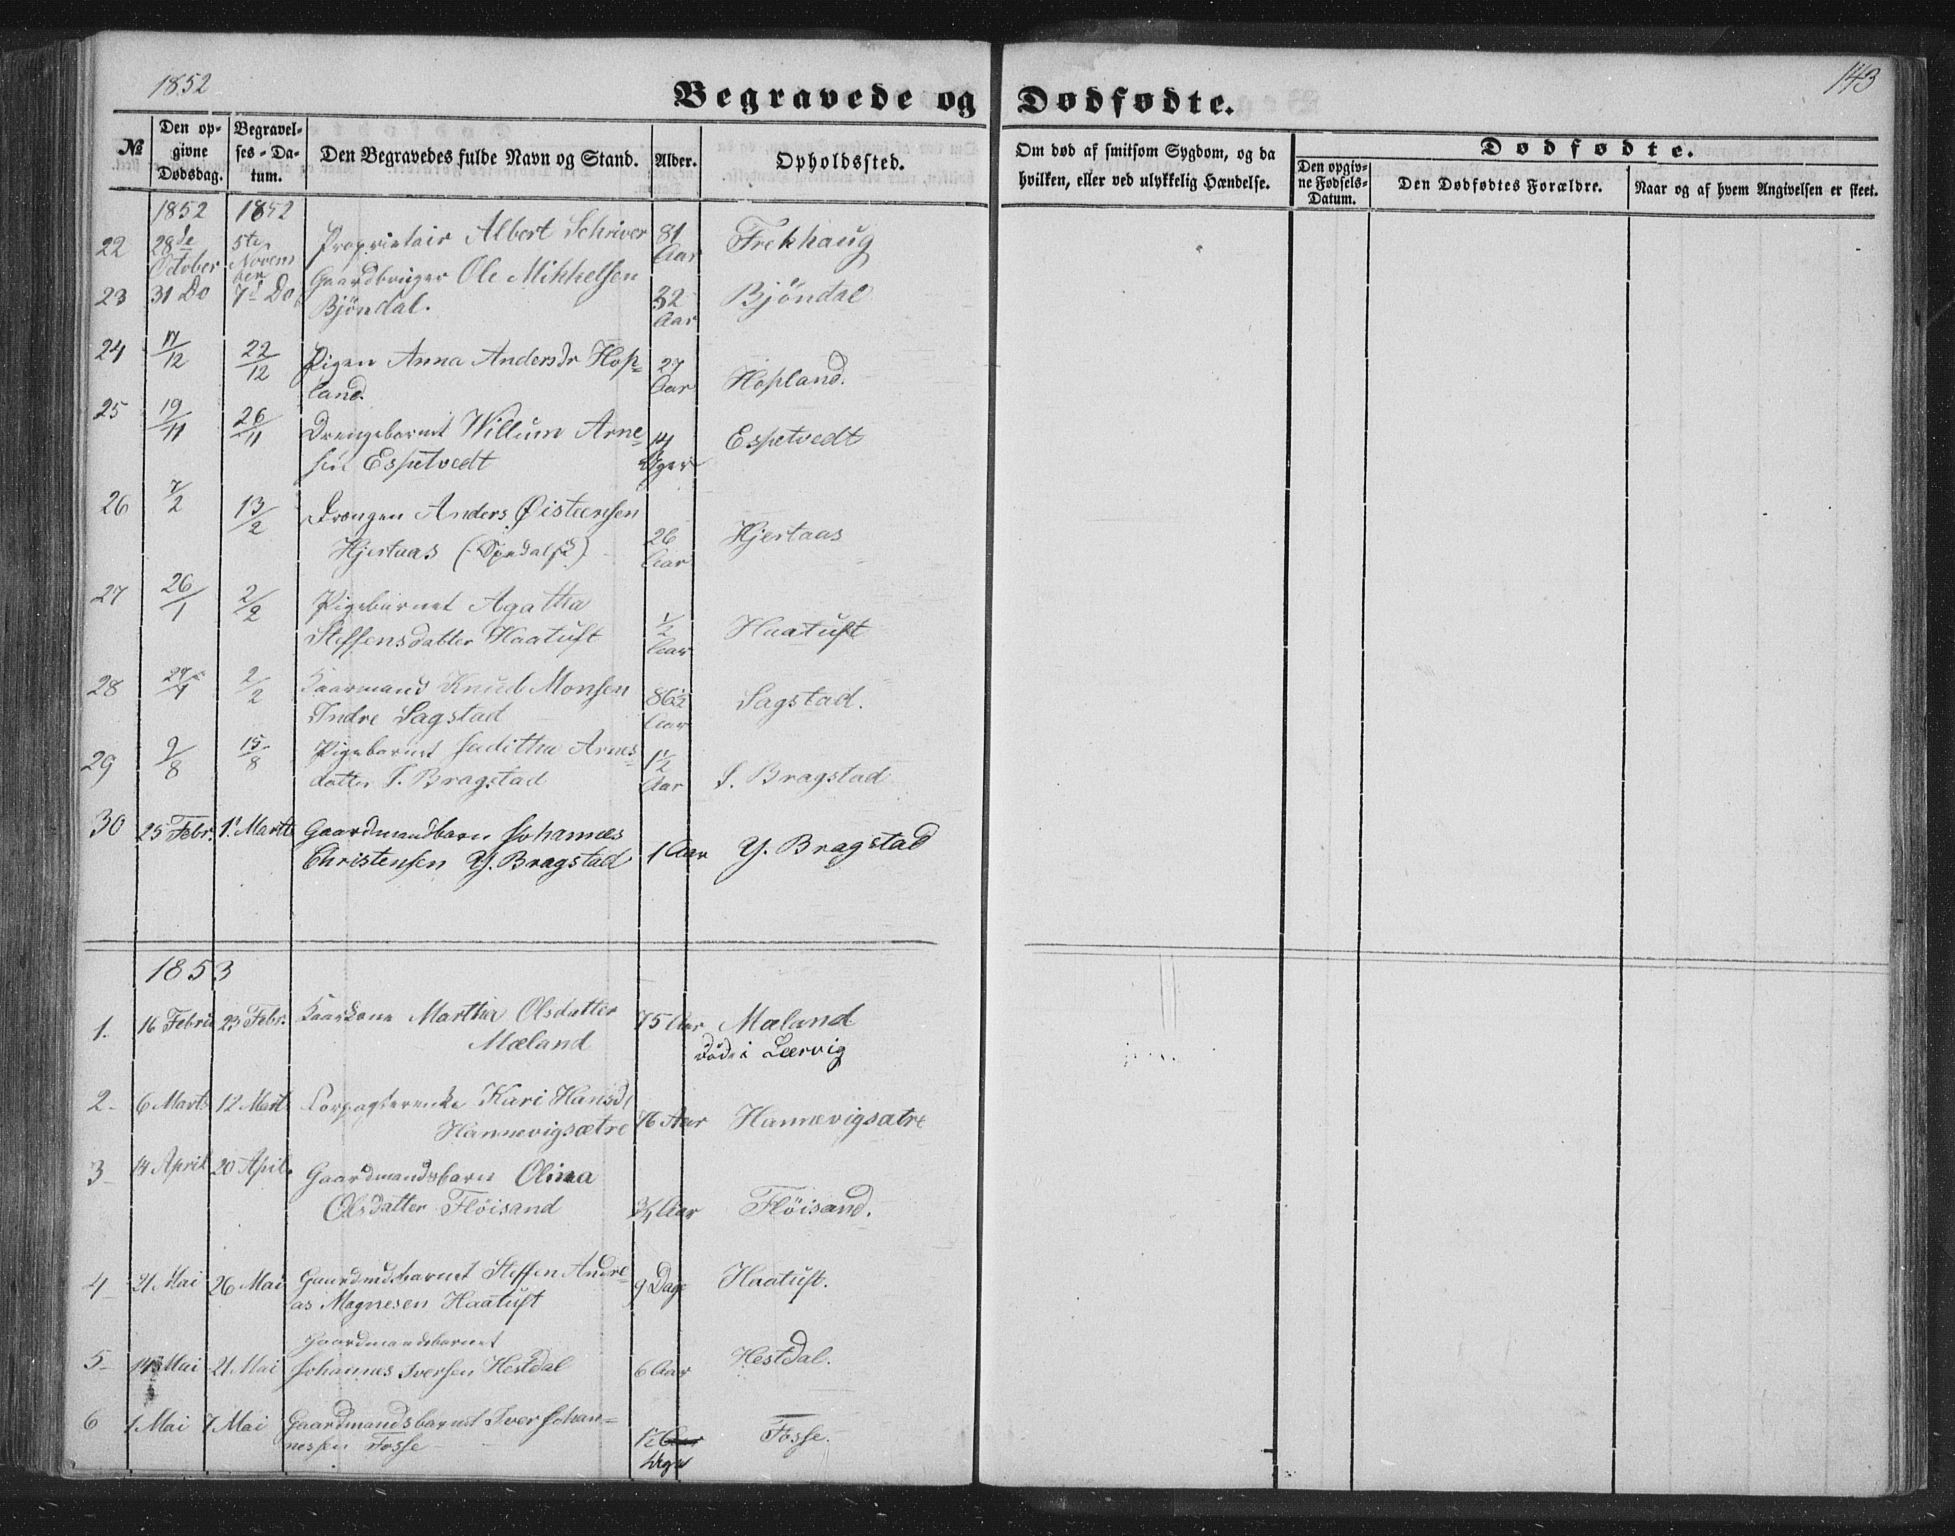 1852
143
Begravede og Dødfødte.
№
Den opgivne Dødsdag.
Begravelses-Datum.
Den Begravedes fulde Navn og Stand.
Alder.
Opholdssted.
Om død af smitsom Sygdom, og da hvilken, eller ved ulykkelig Hændelse.
Dødfødte.
Den opgivne Fødsels-Datum.
Den Dødfødtes Forældre.
Naar og af hvem Angivelsen er skeet.
1852 1852
22 28de October 5te November Proprietair Albert Schriver 81 Aar Frekhaug
23 31 Do 7d Do Gaardbruger Ole Mikkelsen Bjöndal. 32 Aar Bjöndal
24 17/12 22/12 Pigen Anna Andersdr Hopland. 27 Aar Hopland.
25 19/11 26/11 Drengebarnet Willum Arnesen Espetvedt 14 Uger Espetvedt
26 7/2 13/2 Drengen Anders Øistensen Hjertaas 26 Aar Hjertaas
27 26/1 2/2 Pigebarnet Agatha Steffensdatter Haatuft 1/2 Aar Haatuft
28 2/2 Kaarmand Knud Monsen Indre Sagstad 86½ Aar Sagstad.
29 9/8 15/8 Pigebarnet Arnesdatter I. Bragstad 1½ Aar I. Bragstad
30 25 Febr. 1. Marts Gaardmandbarn Johannes Christensen Y. Bragstad 1 Aar Y. Bragstad
1853
1. 16 Februar 23 Febr. Kaarkone Martha Olsdatter Mæland 75 Aar Mæland
död i Leervig
2 6 Marts 12 Marts Kari Hansd. Hannevigsætre 76 Aar Hannevigsætre
3 14 April 20 April. Gaardmandsbarn Olina Olsdatter Flöisand 3/4 Aar Flöisand.
4 21 Mai 26 Mai Gaardmdsbarnet Steffen Andreas Magnesen Haatuft 9 Dage Haatuft.
5 Mai 21 Mai Gaardmandsbarnet Johannes Iversen Hestdal 6 Aar Hestdal.
6 1 Mai 7 Mai Gaardmandsbarnet Iver Johannessen Fosse 1½ Fosse.